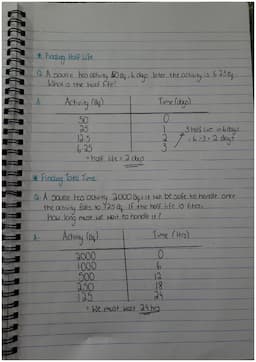 * Finding Half Life
Q: A source has activity 50Bq, 6 days later, the activity is 6.25Bq.
What is the half life?
A: Activity (Bq) Time (days)
50 0
25 1 3 half lives in 6 days
12.5 2 ∴ 6÷3 = 2 days
6.25 3
∴ half life = 2 days
* Finding Total Time
Q: A source has activity 2000Bq. It will be safe to handle once
the activity falls to 125 Bq. If the half life is 6hrs,
how long must we wait to handle it?
A: Activity (Bq) Time (Hrs)
2000 0
1000 6
500 12
250 18
125 24
∴ We must wait 24 hrs